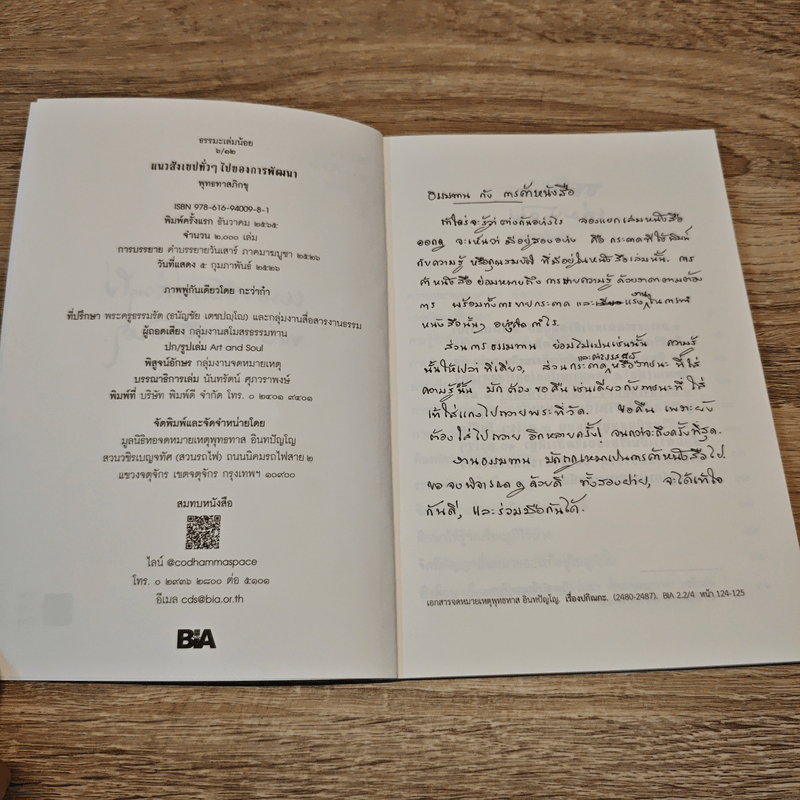 ธรรมะเล่มน้อย
๖/๑๒
แนวสังเขปทั่วๆ ไปของการพัฒนา
พุทธทาสภิกขุ
ISBN 978-616-94009-8-1
พิมพ์ครั้งแรก ธันวาคม ๒๕๖๕
จำนวน ๒,๐๐๐ เล่ม
การบรรยาย คำบรรยายวันเสาร์ ภาคมาฆบูชา ๒๕๒๖
วันที่แสดง ๕ กุมภาพันธ์ ๒๕๒๖
ภาพพู่กันเดียวโดย กะว่าก๋า
ที่ปรึกษา พระครูธรรมรัต (ธนัญชัย เตชปญฺโญ) และกลุ่มงานสื่อสารงานธรรม
ผู้ถอดเสียง กลุ่มงานสโมสรธรรมทาน
ปก/รูปเล่ม Art and Soul
พิสูจน์อักษร กลุ่มงานจดหมายเหตุ
บรรณาธิการเล่ม นันทรัตน์ ศุภวราพงษ์
พิมพ์ที่ บริษัท พิมพ์ดี จำกัด โทร. ๐ ๒๔๐๑ ๙๔๐๑
จัดพิมพ์และจัดจำหน่ายโดย
มูลนิธิหอจดหมายเหตุพุทธทาส อินทปัญโญ
สวนวชิรเบญจทัศ (สวนรถไฟ) ถนนนิคมรถไฟสาย ๒
แขวงจตุจักร เขตจตุจักร กรุงเทพฯ ๑๐๙๐๐
สมทบหนังสือ
ไลน์ @codhammaspace
โทร. ๐ ๒๙๓๖ ๒๘๐๐ ต่อ ๕๑๐๑
อีเมล cds@bia.or.th
BIA
ธรรมทาน กับ การค้าหนังสือ
ถ้าใคร่จะรู้ว่าต่างกันอย่างไร ลองแยกเล่มหนังสือ
ออกดู จะเห็นว่า มีอยู่สองอย่าง คือ กระดาษที่ใช้พิมพ์
กับความรู้ หรือคุณสมบัติ ที่มีอยู่ในหนังสือเล่มนั้น. การ
ค้าหนังสือ ย่อมหมายถึง การขายความรู้ ด้วยราคาตามต้อง
การ พร้อมทั้งการขายกระดาษ และ แรงงาน ในการทำ
หนังสือนั้นๆ อย่างเอากำไร.
ส่วนการธรรมทาน ย่อมไม่เป็นเช่นนั้น ความรู้
นั้นให้เปล่า ทีเดียว, ส่วนกระดาษ และค่าแรง หรือภาชนะ ที่ใส่
ความรู้นั้น มัก ต้อง ขอคืน เช่นเดียวกับภาชนะที่ ใส่
เทใส่แกงไปถวายพระที่วัด. ขอคืน เพราะยัง
ต้องใส่ไปถวาย อีกหลายครั้ง จนกว่าจะถึงครั้งที่สุด.
งานธรรมทาน มักถูกเหมาเป็นการค้าหนังสือไป.
ขอจงพิจารณาดู ด้วยดี ทั้งสองฝ่าย, จะได้เข้าใจ
กันดี, และร่วมมือกันได้.
เอกสารจดหมายเหตุพุทธทาส อินทปัญโญ. เรื่องปกิณกะ. (2480-2487). BIA 2.2/4 หน้า 124-125